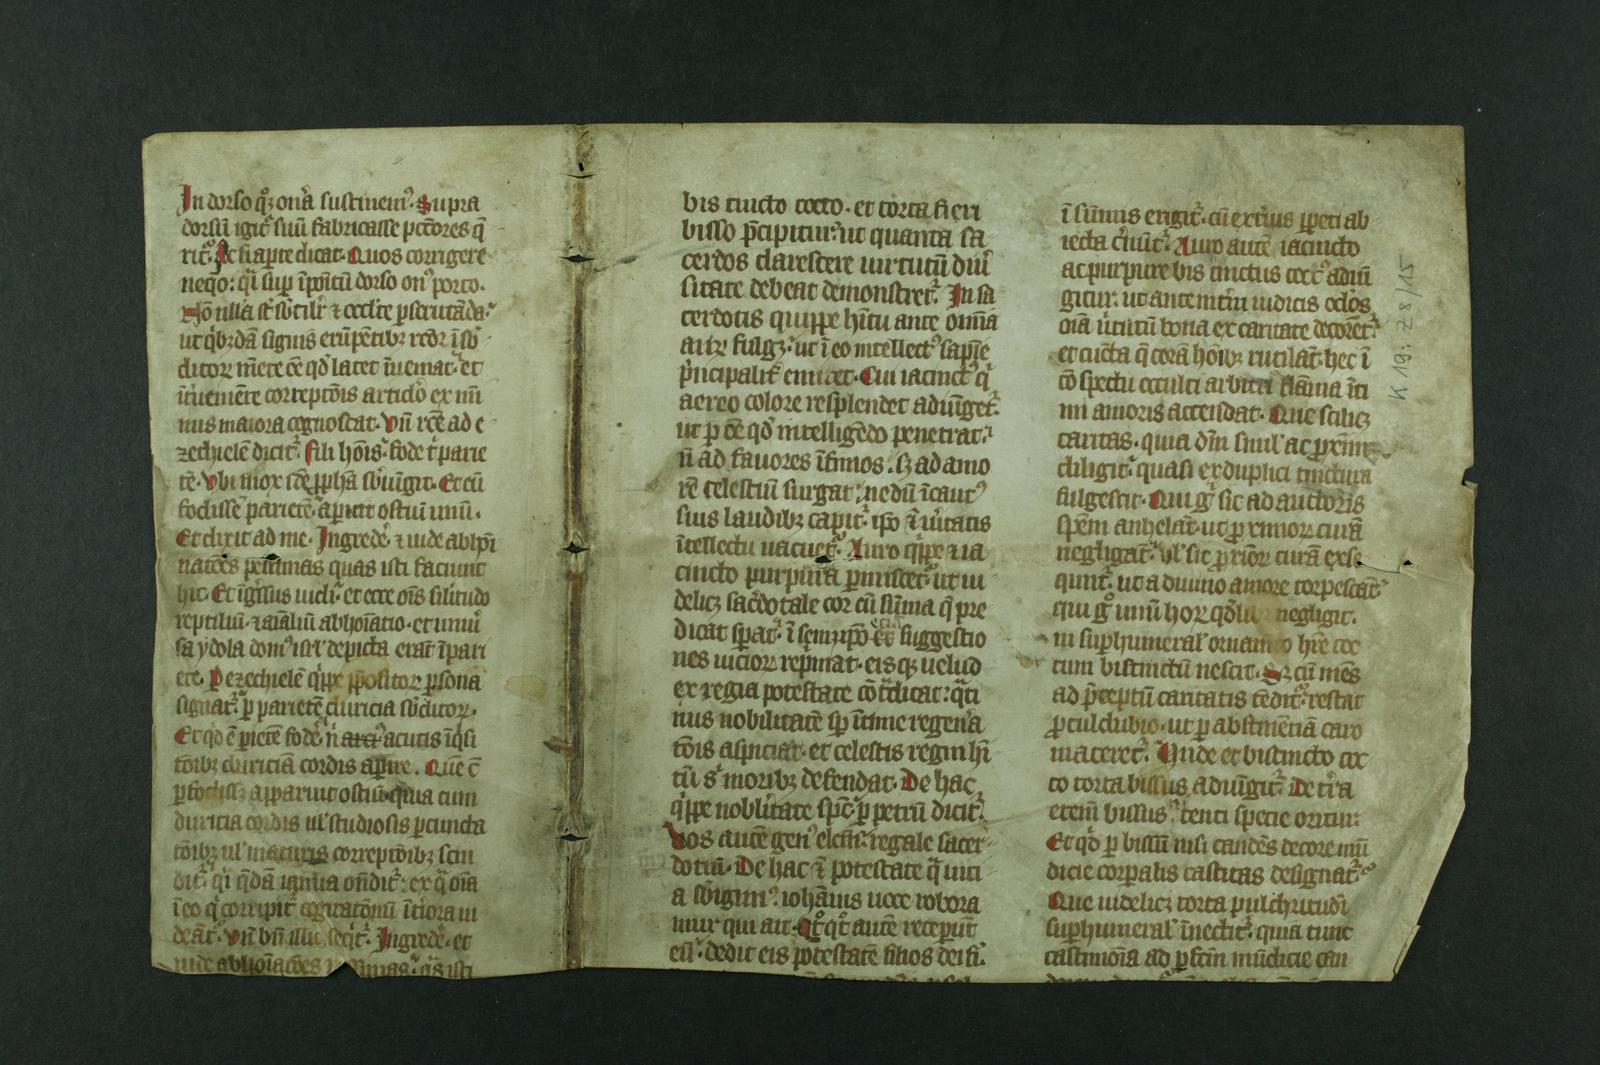 In dorso qꝫ on̄a sustinem᷒. Supra
dorsū igit᷑ suū fabricasse pctōres q̄
rit᷑. Ac si aꝑte dicat. Quos corrigere
neqo: q̄i suꝑ īpōitū dorso on᷒ porto.
ut qͥbꝫdā signis erūpētibꝫ rcōr ī sb̄
ditoꝝ mēte ōē qd̄ latet īueniat. et
īt̄ueniēte correptōis articlo ex mi
nimis maiora cognoscat. Vn̄ rcē ad e
zechielē dicit᷑. fili hōis fode ꝑarie
tē. Vbi mox idē ꝓph̄a sb̄iūgit. Et cū
fodissē parietē aꝑuit ostiū unū.
Et dixit ad me. Ingredē᷑ ⁊ uide abhōi
natōes pessimas quas isti faciunt
hic. Et īg̃ssus uidi. et ecce oīs silitudo
reptiliū ⁊ aīaliū abhoīatio. et uniu᷑
sa ydola dom᷒ isrl̄ depicta erāt ī pari
ete. Per ezechielē qͥppe ꝓpositoꝝ ꝑsona
signat᷑. ꝑ parietē duricia sb̄ditoꝝ.
Et qd̄ ē ꝑietē fodē᷑ n̄ acutis īqͥsi
tōibꝫ duriciā cordis aꝑire. Que c̄
ꝑfodissꝫ apparuit ostiū quia cum
duricia cordis ul᷑ studiosis ꝑcuncta
tōibꝫ ul᷑ maturis correptōibꝫ scin
dit᷑. qͣi q̄dā ianua on̄dit᷑. ex qͣ oīa
ī eo qͥ corripit᷑ cogitatōnū īt̄iora ui
deāt᷑. Vn̄ bn̄ illic seqͥt᷑. Ingredē᷑ et
uide abhoīacōes pessimas qͣs isti
bis tincto cocto. et torta fieri
bisso p̄cipitur. ut quanta sa
cerdos clarescere uirtutū diu᷑
sitate debeat demonstret᷑. In sa
cerdotis quippe hītu ante omīa
aurū fulgꝫ. ut ī eo intellect᷒ sapīe
pͥncipalit᷑ emicet. Cui iacinct᷒ qͥ
aereo colore resplendet adiūget᷑.
ut ꝑ ōē qd̄ intelligēdo penetrat.
n̄ ad fauores īfimos. sꝫ ad amo
rē celestiū surgat. ne dū īcaut᷒
suis laudibꝫ capit᷑. ipō ⁊̄ ūitatis
ītellectu uacuet᷑. Auro qͥppe ⁊ ia
cincto purpura ꝑmiscet᷑. ut ui
delicꝫ sac̄dotale cor cū sūma q̄ pre
dicat sꝑat. ī semetipō etiā suggestio
nes uicioꝝ repͥmat. eisqꝫ uelud
ex regia potestate cōt̄dicat. qͣti
nus nobilitatē sꝑ ītime regen̄a
tōis aspiciat. et celestis regni hī
tū sͥ moribꝫ defendat. De hac
qͥppe nobl̄itate spc̄ ꝑ petrū dicit᷑.
Vos autē gen᷒ elcm̄. regale sacer
dotiū. De hac ⁊̄ potestate qͣ uici
a sb̄igim᷒. ioh̄nis uoce robora
mur qui ait. Qͦtqͦt autē receperūt
eū. dedit eis potestatē filios dei fi.
ī sūmis erigit᷑. cū ext̄ius ꝑpeti ab
iecta c̄niūt᷑. Auro autē iacincto
ac purpure bis tinctus coct᷒ adiū
gitur. ut ante int̄ni iudicis oclōs
oīa ūtutū bona ex caritate decorēt᷑.
et cuncta q̄ corā hōibꝫ rutilāt. hec ī
cōspectu occulti arbitri flāma īti
mi amoris accendat. Que scilicꝫ
caritas. quia dm̄ simul ac ꝓximū
diligit. quasi ex duplici tinctura
fulgescit. Qui gͦ sic ad auctoris
spēm anhelat. ut ꝓximoꝝ curā
negligat. ul᷑ sic ꝓximoꝝ curā exse
quit᷑. ut a diuino amore torpescat.
qui gͦ unū hoꝝ qd̄libet negligit.
in suꝑhumeral᷑ ornamēto h̄re coc
cum bistinctū nescit. Sꝫ cū mēs
ad p̄ceptū caritatis tēdit᷑. restat
ꝓculdubio. ut ꝑ abstinētiā caro
maceret᷑. Unde et bistincto coc
co torta bissus adiūgit᷑. De tr̄a
etenī bissus nitenti specie oritur
Et qͥd ꝑ bissū nisi candēs decore mū
dicie corꝑalis castitas designat᷑.
Que uidelicꝫ torta pulchritudīi
suꝑhumeral᷑ īnectit᷑. quia tunc
castimonia ad ꝑfctm̄ mūdicie can
K 19: Z8/15